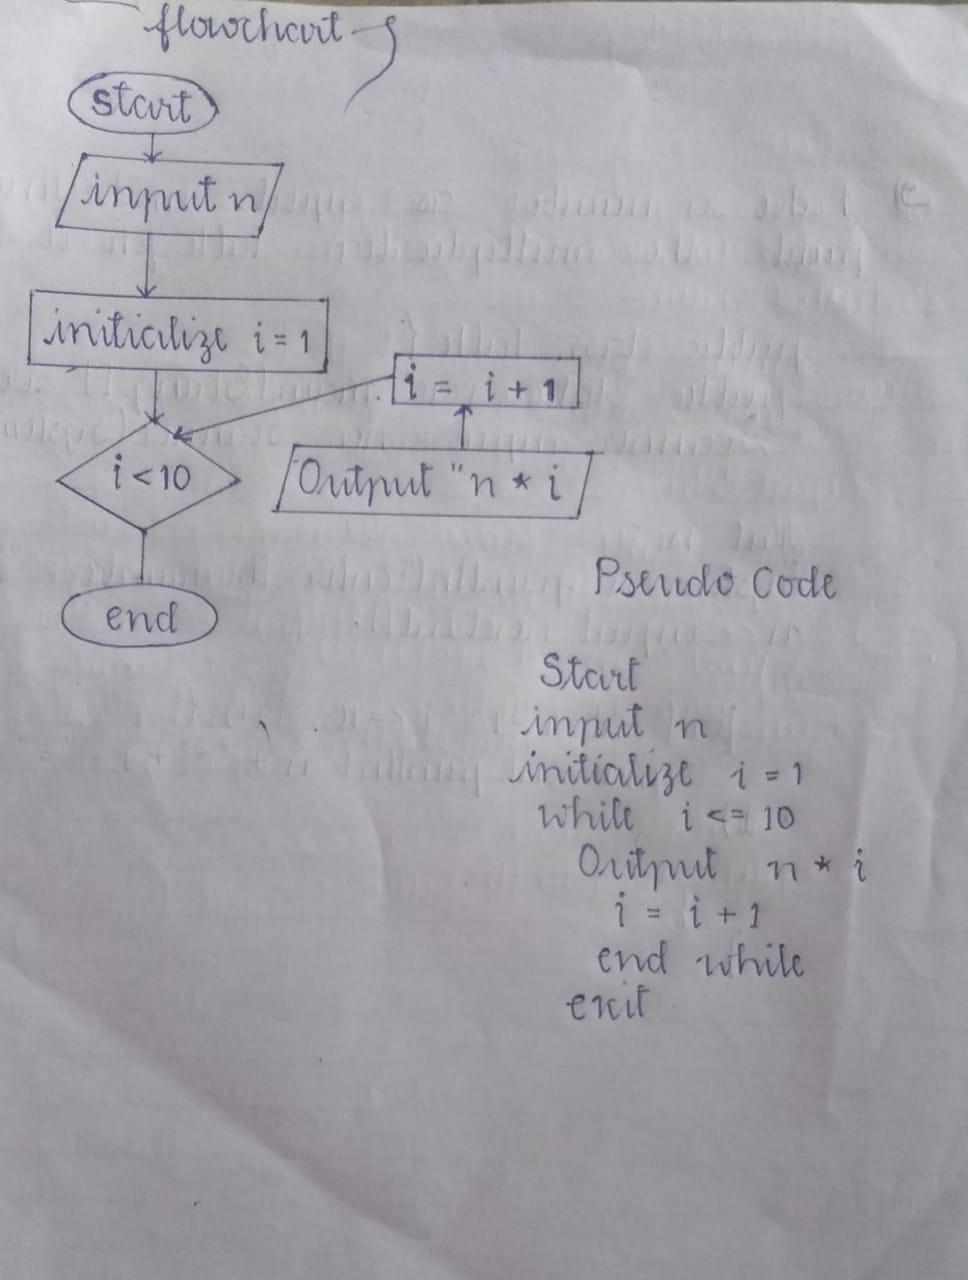 flowchart
start
input n
initialize i = 1
i = i + 1
i < 10
Output "n * i
end
Pseudo Code
Start
input n
initialize i = 1
while i <= 10
Output n * i
i = i + 1
end while
exit